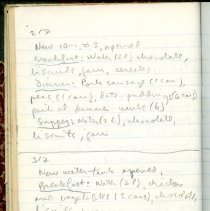 2/7
New 10-1, #3, opened
Breakfast: Water (2l) chocolate,
biscuits, jam, cereals.
Dinner: Pork sausage (1 can),
peas (1 can), date puddings (2 cans)
Supper: Water (2l), chocolate,
biscuits, jam
3/7
New water tank opened,
Breakfast: Water (2l), chicken
and vegetables (2 cans), chocolate,